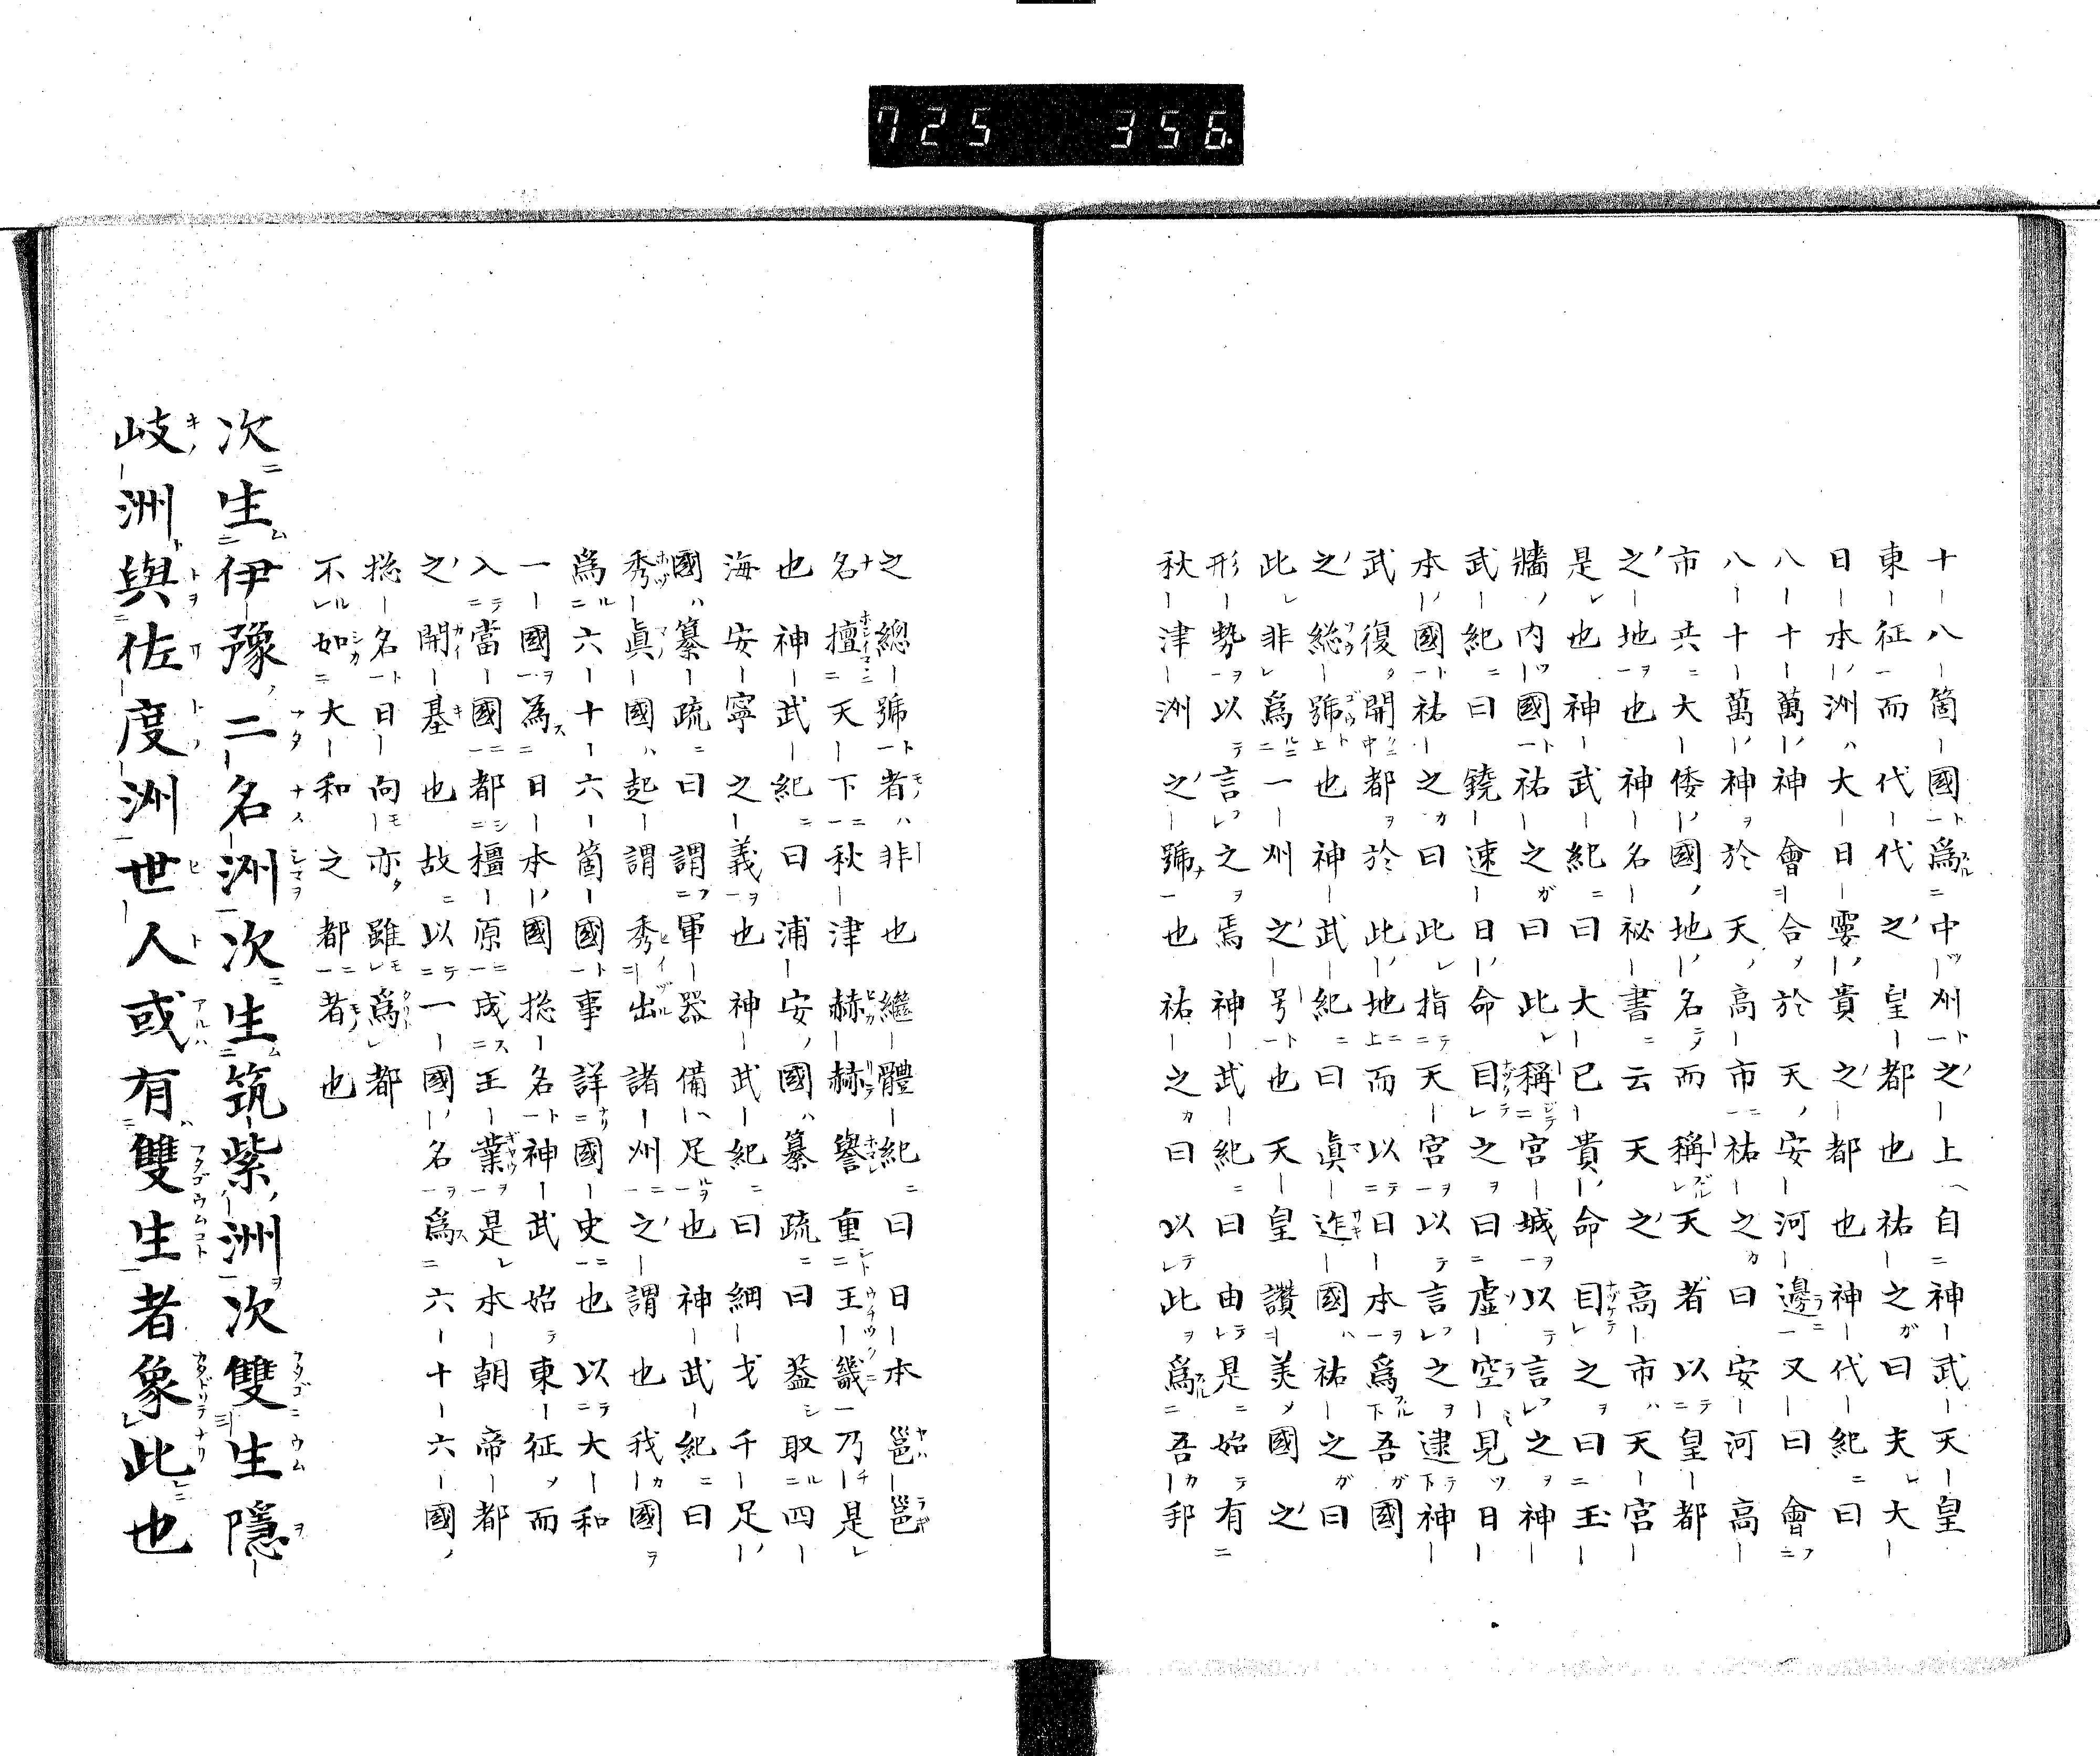 725 356
十八箇國爲中州之上自神武天皇
東征而代代之皇都也祐之曰夫大
日本洲大日孁貴之都也神代紀曰
八十萬神會合於天安河邊又曰會
八十萬神於天高市祐之曰安河高
市共大倭國地名而稱天者以皇都
之地也神名祕書云天之高市天宮
是也神武紀曰大已貴命目之曰玉
牆内國祐之曰此稱宮城以言之神
武紀曰鐃速日命目之曰虛空見日
本國祐之曰此指天宮以言之逮神
武復開都於此地而以日本爲吾國
之総號也神武紀曰眞迮國祐之曰
此非爲一州之号也天皇讚美國之
形勢以言之焉神武紀曰由是始有
秋津洲之號也祐之曰以此爲吾邦
之總號者非也繼體紀曰日本邕邕
名擅天下秋津赫赫譽重王畿乃是
也神武紀曰浦安國纂疏曰葢取四
海安寧之義也神武紀曰細戈千足
國纂疏曰謂軍器備足也神武紀曰
秀眞國起謂秀出諸州之謂也我國
爲六十六箇國事詳國史也以大和
一國為日本國捴名神武始東征而
入當國都橿原成王業是本朝帝都
之開基也故以一國名爲六十六國
捴名日向亦雖爲都
不如大和之都者也
次生伊豫二名洲次生筑紫洲次雙生隱
岐洲與佐度洲世人或有雙生者象此也